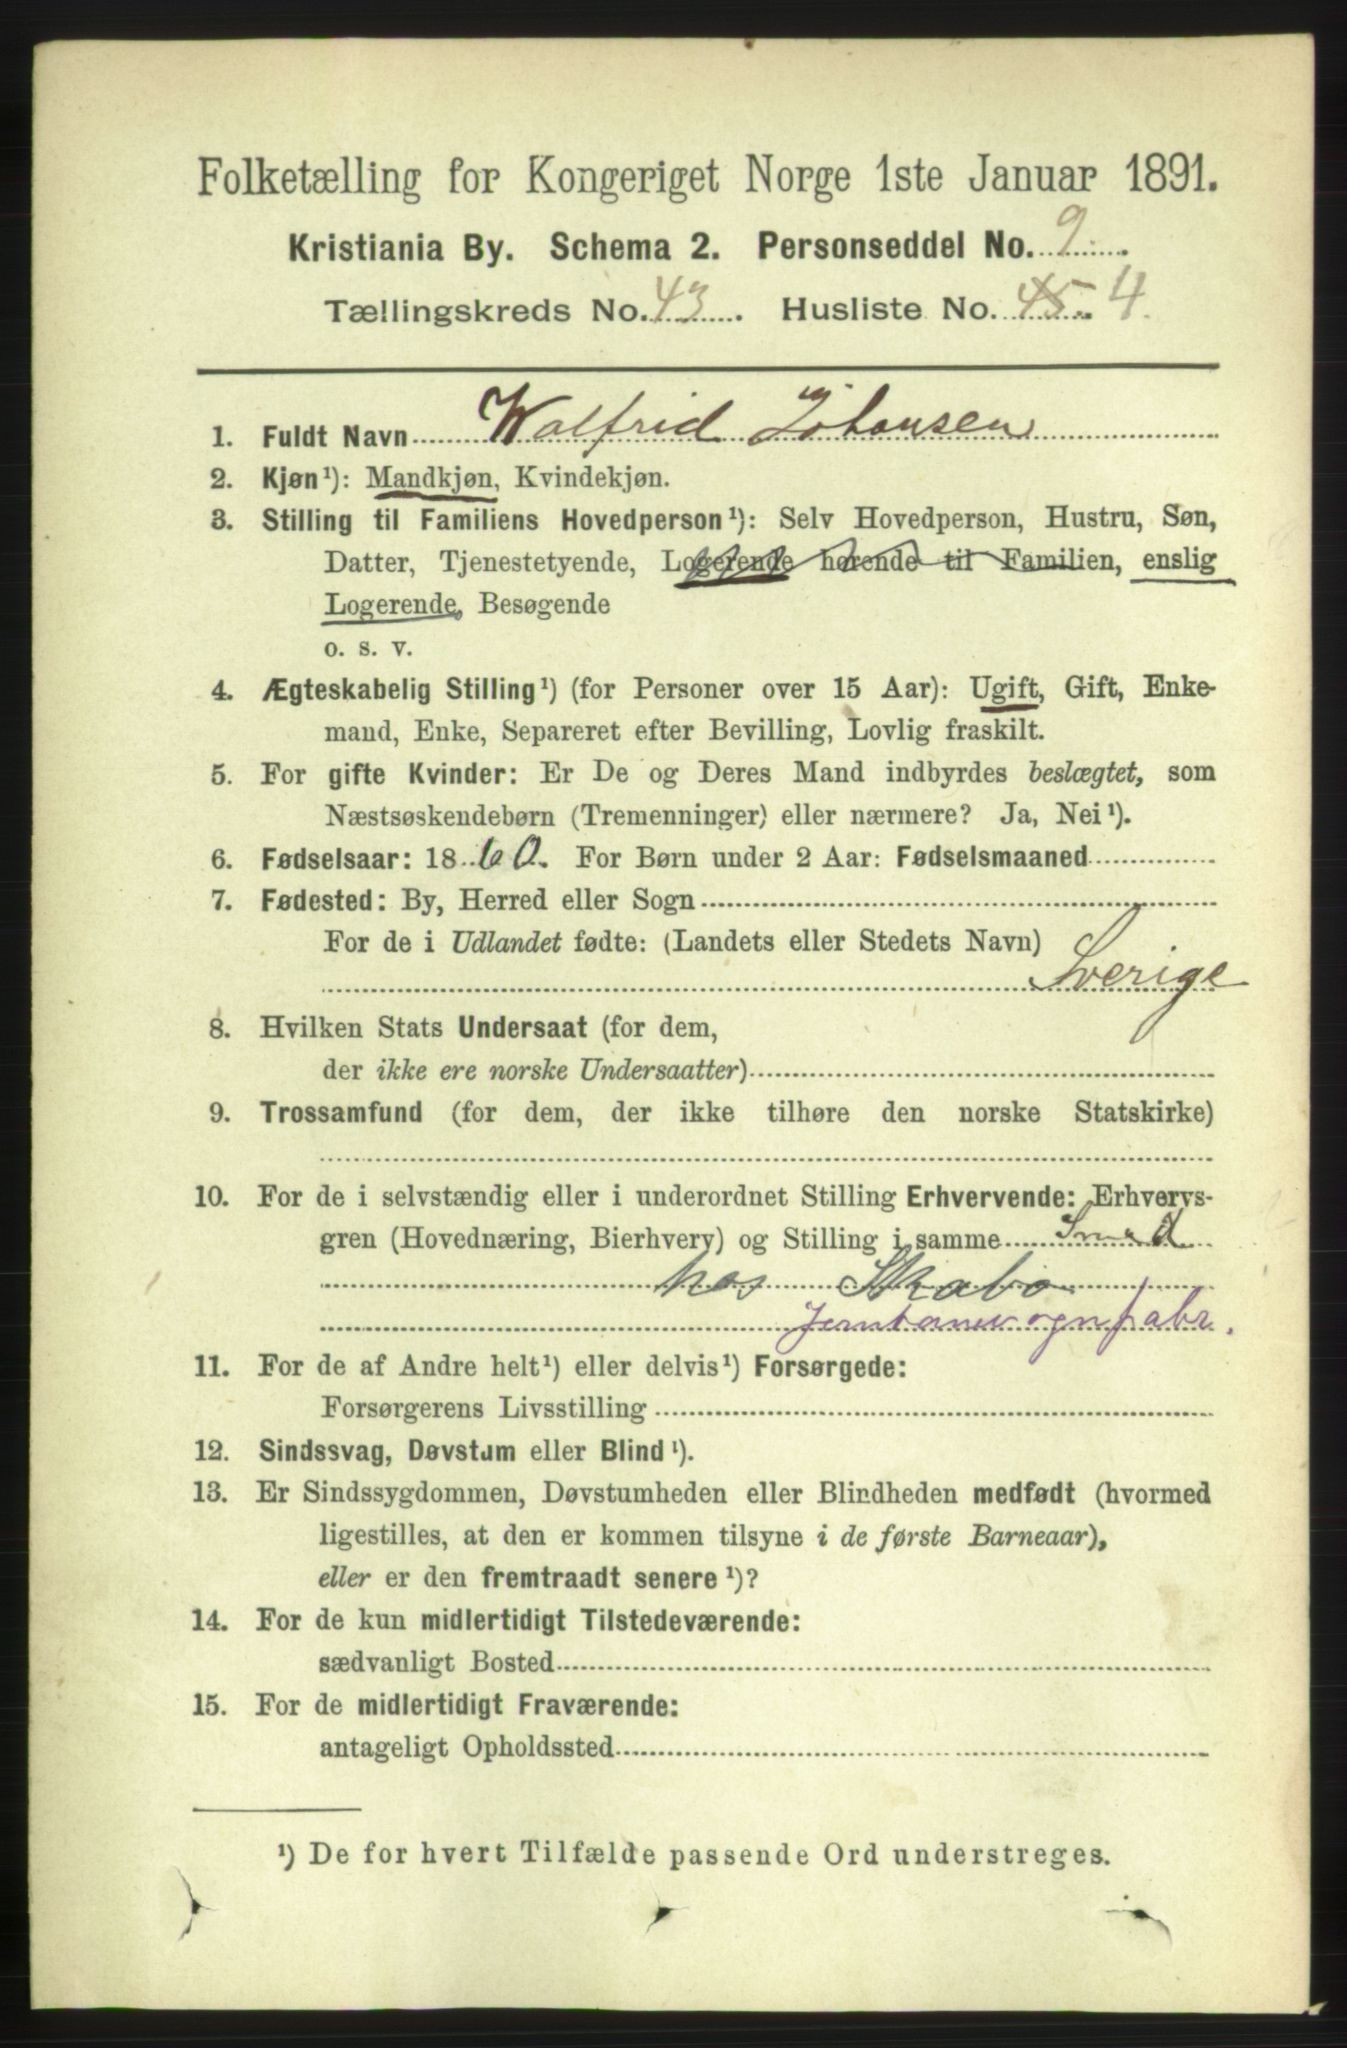 Folketælling for Kongeriget Norge 1ste Januar 1891.
Kristiania By. Schema 2. Personseddel No. 9
Tællingskreds No. 43. Husliste No. 45. 4.
1. Fuldt Navn Walfrid Johansen
2. Kjøn ¹): Mandkjøn, Kvindekjøn.
3. Stilling til Familiens Hovedperson ¹): Selv Hovedperson, Hustru, Søn,
Datter, Tjenestetyende, Logerende hørende til Familien, enslig
Logerende, Besøgende
o. s. v.
4. Ægteskabelig Stilling ¹) (for Personer over 15 Aar): Ugift, Gift, Enke-
mand, Enke, Separeret efter Bevilling, Lovlig fraskilt.
5. For gifte Kvinder: Er De og Deres Mand indbyrdes beslægtet, som
Næstsøskendebørn (Tremenninger) eller nærmere? Ja, Nei ¹).
6. Fødselsaar: 1860. For Børn under 2 Aar: Fødselsmaaned
7. Fødested: By, Herred eller Sogn
For de i Udlandet fødte: (Landets eller Stedets Navn)
Sverige
8. Hvilken Stats Undersaat (for dem,
der ikke ere norske Undersaatter)
9. Trossamfund (for dem, der ikke tilhøre den norske Statskirke)
10. For de i selvstændig eller i underordnet Stilling Erhvervende: Erhvervs-
gren (Hovednæring, Bierhverv) og Stilling i samme Smed
hos Skabo
Jernbanevognfabr.
11. For de af Andre helt ¹) eller delvis ¹) Forsørgede:
Forsørgerens Livsstilling
12. Sindssvag, Døvstum eller Blind ¹).
13. Er Sindssygdommen, Døvstumheden eller Blindheden medfødt (hvormed
ligestilles, at den er kommen tilsyne i de første Barneaar),
eller er den fremtraadt senere ¹)?
14. For de kun midlertidigt Tilstedeværende:
sædvanligt Bosted
15. For de midlertidigt Fraværende:
antageligt Opholdssted
¹) De for hvert Tilfælde passende Ord understreges.